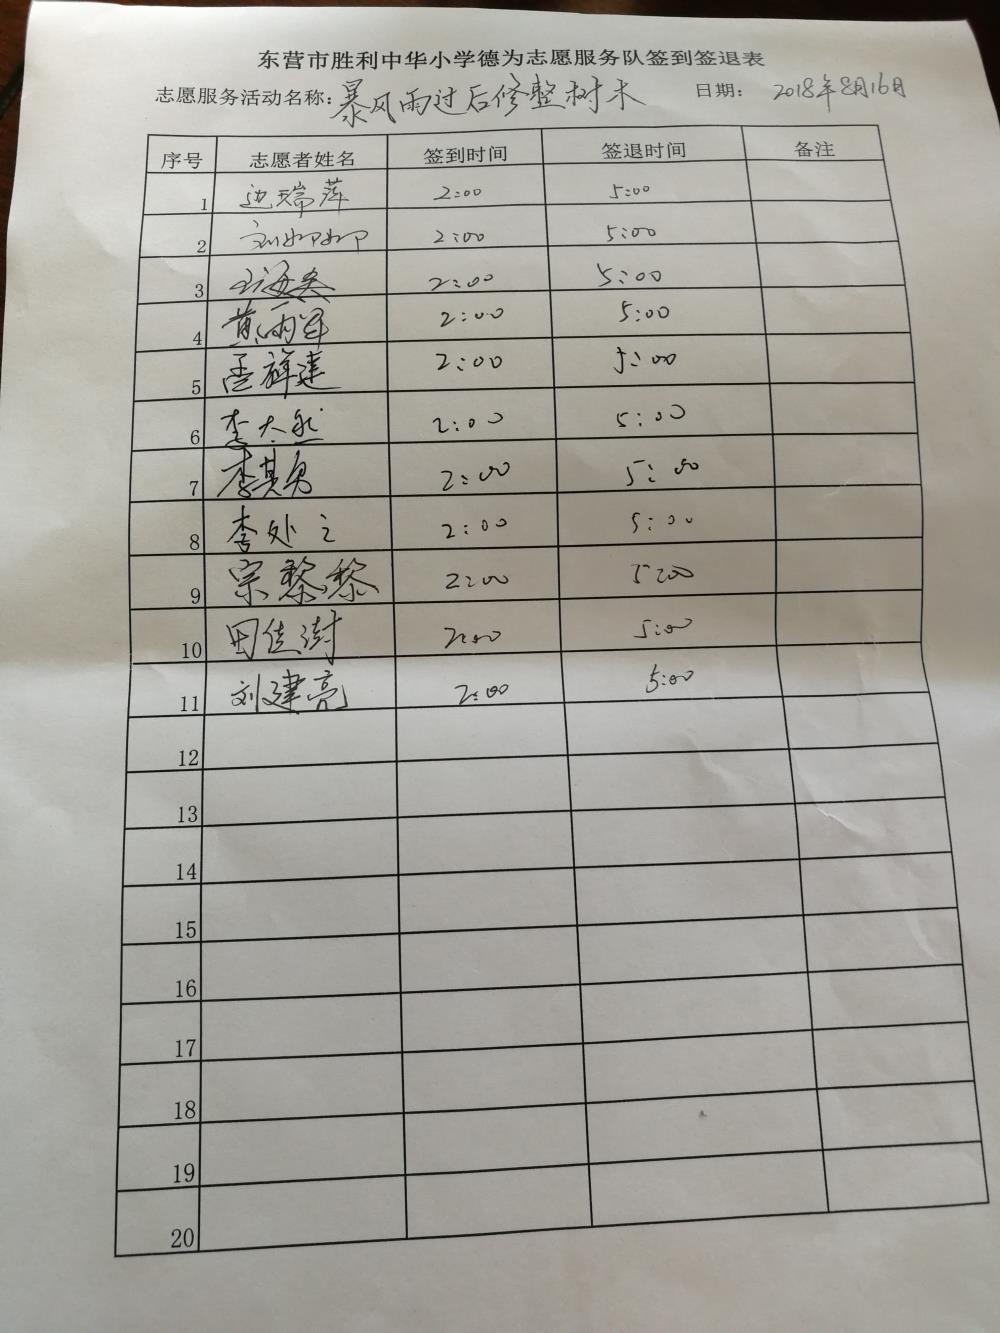 东营市胜利中华小学德为志愿服务队签到签退表
志愿服务活动名称：暴风雨过后修整树木 日期： 2018年8月16日
序号 志愿者姓名 签到时间 签退时间 备注
1 边瑞萍 2:00 5:00
2 刘柳柳 2:00 5:00
3 2:00 5:00
4 黄雨 2:00 5:00
5 孟祥建 2:00 5:00
6 李大 2:00 5:00
7 李其勇 2:00 5:00
8 李处 2:00 5:00
9 宗黎黎 2:00 5:00
10 田佳澍 2:00 5:00
11 刘建亮 2:00 5:00
12
13
14
15
16
17
18
19
20